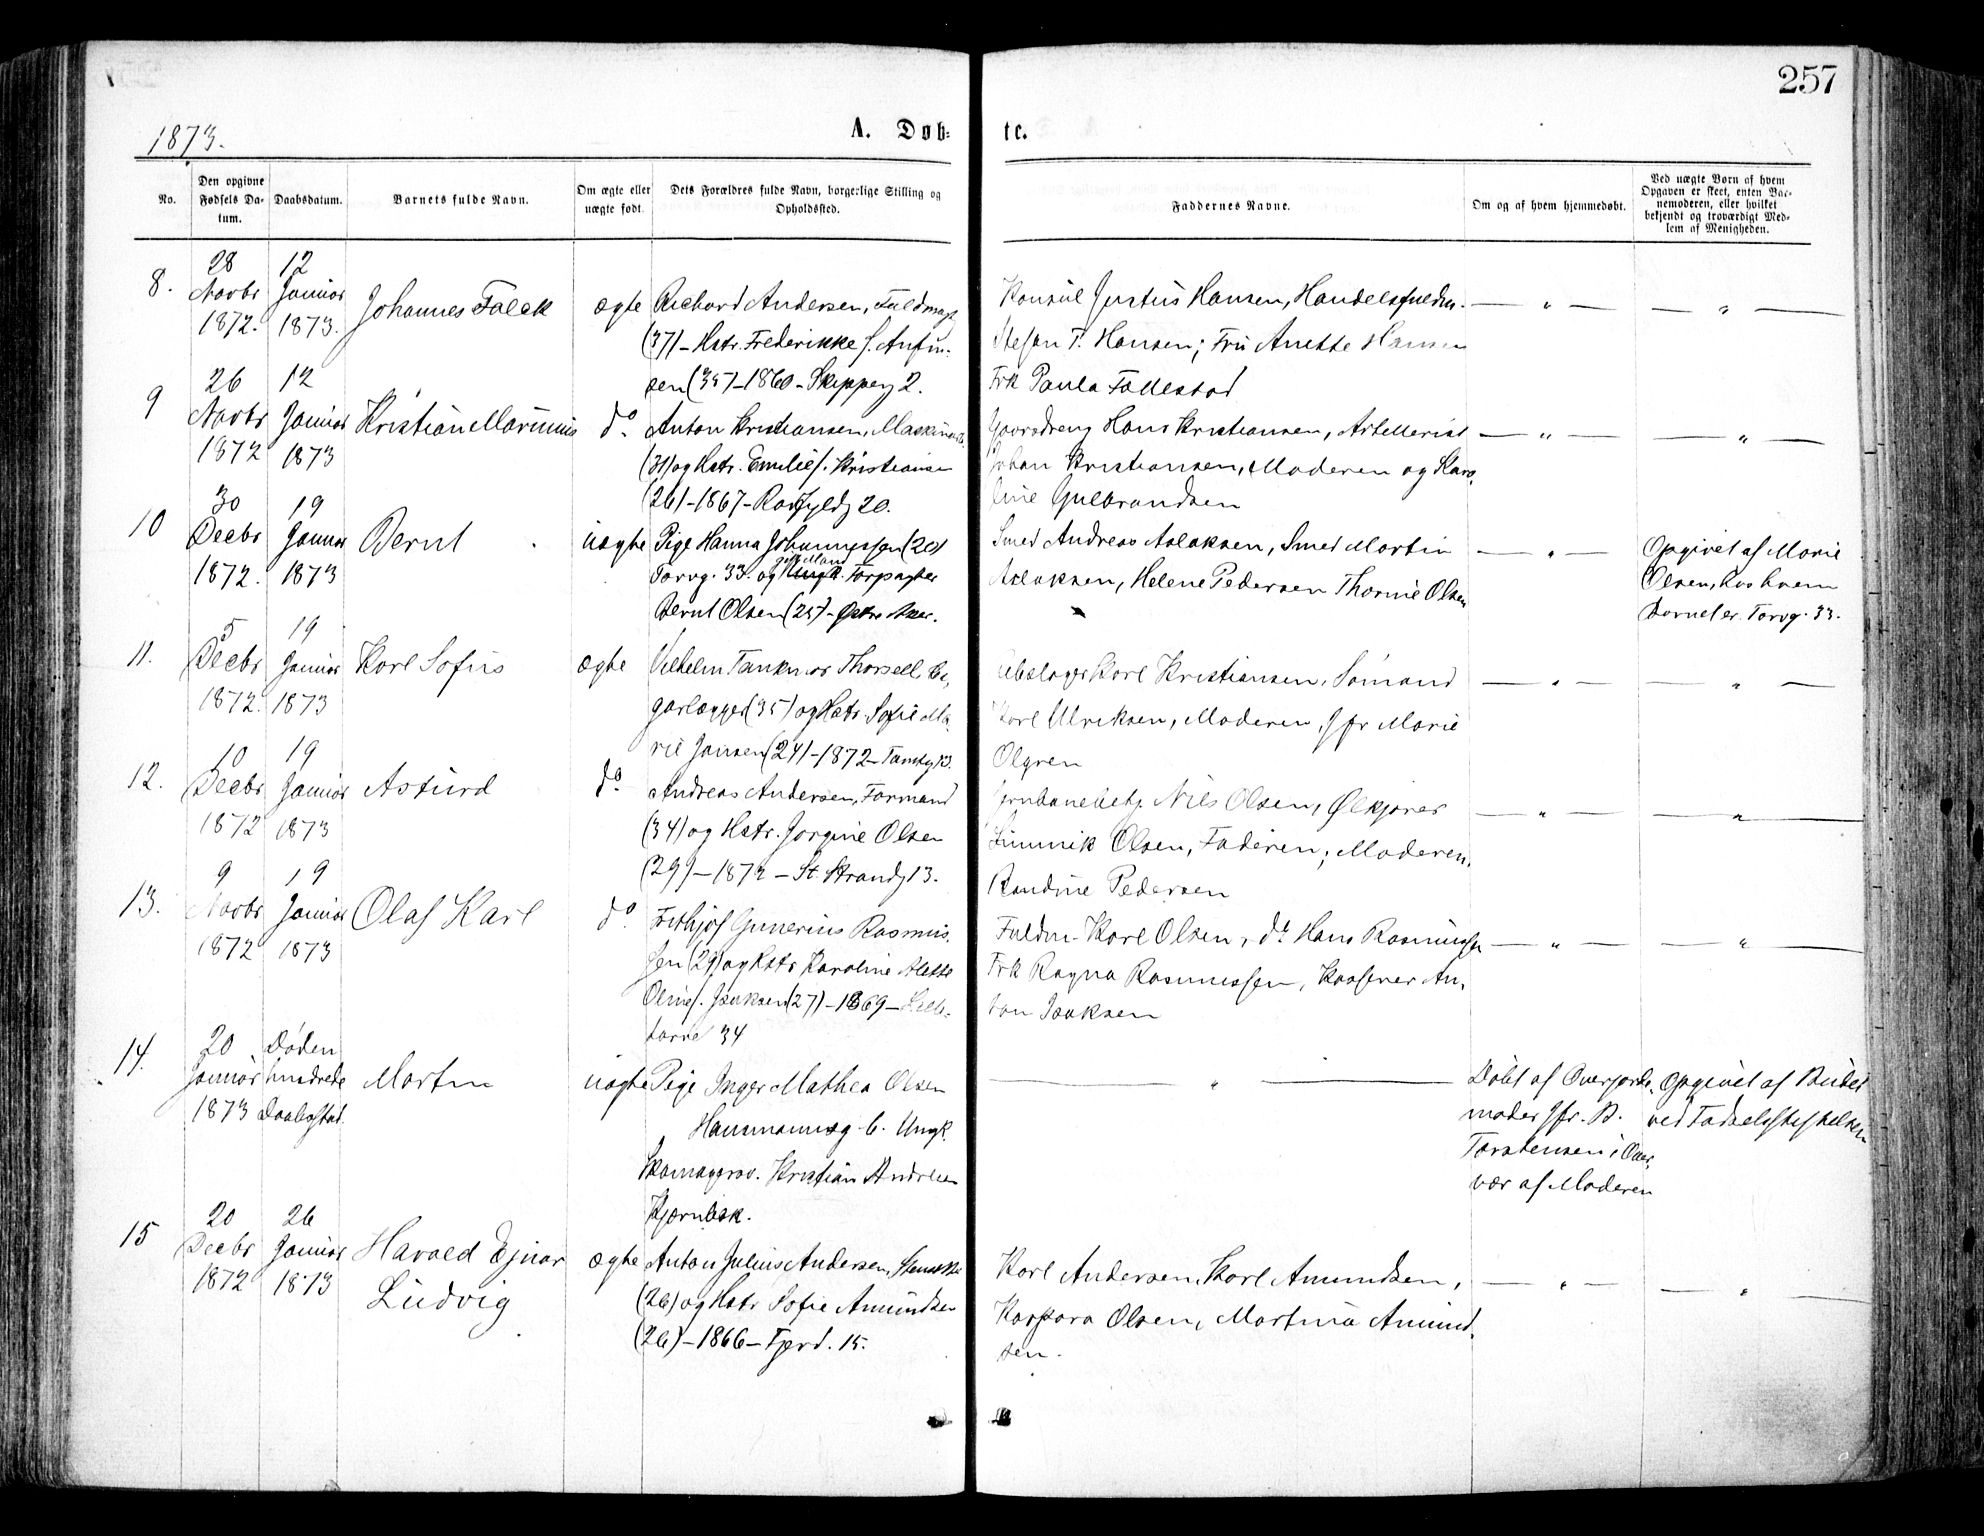 257
1873.
A. Døb-
te.
No.
Den opgivne Fødsels Da-tum.
Daabsdatum.
Barnets fulde Navn.
Om ægte eller uægte født.
Dets Forældres fulde Navn, borgerlige Stilling og Opholdssted.
Faddernes Navne.
Om og af hvem hjemmedøbt.
Ved uægte Børn af hvem Opgaven er skeet, enten Bar-nemoderen, eller hvilket bekjendt og troværdigt Med-lem af Menigheden.
8.
28 Novbr 1872.
12 Januar 1873.
Johannes Falck
ægte
Richard Andersen, Fuldmægt
(37) - Hstr. Frederikke f. Anfin-
sen (35) - 1860 - Skipperg 2.
Konsul Justus Hansen, Handelsfuldm.
Stefan T. Hansen; Fru Anette Hansen
Frk Paula Follestad
— " —
— " —
9
26 Novbr 1872
12 Januar 1873
Kristian Marinius
do.
Anton Kristiansen, Maskinarb.
(31) og Hstr. Emilie f. Kristiansen
(26) - 1867 - Rosfyldg 20.
Gaardsdreng Hans Kristiansen, Artillerist
Johan Kristiansen, Moderen og Karo-
line Gulbrandsen
— " —
— " —
10
30 Decbr 1872.
19 Januar 1873
Bernt
uægte
Pige Hanna Johannessen (20)
Torvg. 33. og gift Mand Forpagter
Bernt Olsen (25) - Østre Aker.
Smed Andreas Aslaksen, Smed Martin
Aslaksen, Helene Pedersen Thorine Olsen
— " —
Opgivet af Marie
Olsen, hos hvem
Barnet er. Torvg. 33.
11.
5 Decbr 1872.
19 Januar 1873
Karl Sofus
ægte
Vilhelm Tankmar Thorsell, Ci-
garlægger (35) og Hstr. Sofie Ma-
rie Jansen (24) - 1872 - Tomtg 13.
Karl Kristiansen, Sømand
Karl Ulriksen, Moderen, Jfr Marie
Olgren
— " —
— " —
12.
10 Decbr 1872
19 Januar 1873
Asturd
do.
Andreas Andersen, Formand
(34) og Hstr. Jorgine Olsen
(29) - 1872 - St. Strandg 13.
Jernbanebetj. Nils Olsen, Ølkjører
Olsen, Faderen; Moderen,
Randine Pedersen
— " —
— " —
13.
9 Novbr 1872
19 Januar 1873
Olaf Karl
do.
Frithjof Gunerius Rasmus-
sen (29) og Hstr Karoline Alette
Oline f. Isaksen (27) - 1869 - Lille-
torve 34
Fuldm. Karl Olsen, do. Hans Rasmussen
Frk Ragna Rasmussen, Kasserer An-
ton Isaksen
— " —
— " —
14.
20 Januar 1873
Døden hindrede Daabsstad.
Martin
uægte
Pige Inger Mathea Olsen
Hausmannsg 6. Ungk.
Skomagersv. Kristian Andreas
Kjernbæk.
— " —
Døbt af Overjorde-
moder Jfr. B.
Torstensen i Over-
vær af Moderen
Opgivet af Budet
ved Fødselsstiftelsen
15
20 Decbr 1872
26 Januar 1873
Harald Ejnar
Ludvig
ægte
Anton Julius Andersen,
(26) og Hstr Sofie Amundsen
(26) - 1866 - Fjerd. 15.
Karl Andersen, Karl Amundsen,
Kaspara Olsen, Martina Amund-
sen.
— " —
— " —